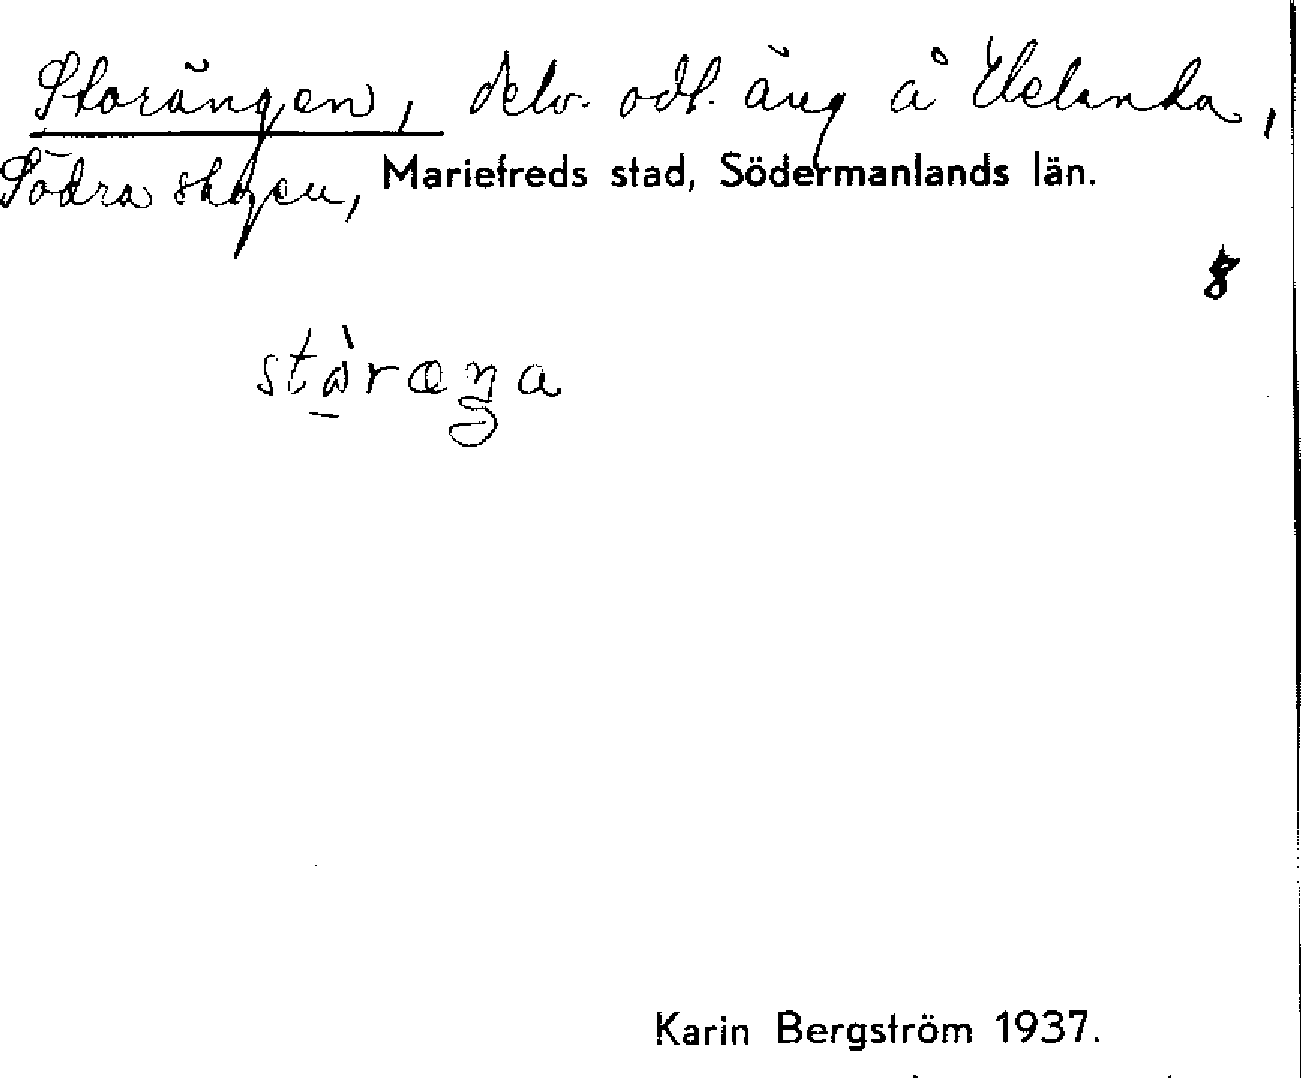 Storängen, delv. odl. äng å Helenka,
Södra skogen, Mariefreds stad, Södermanlands län.
8
stòræŋa
Karin Bergström 1937.